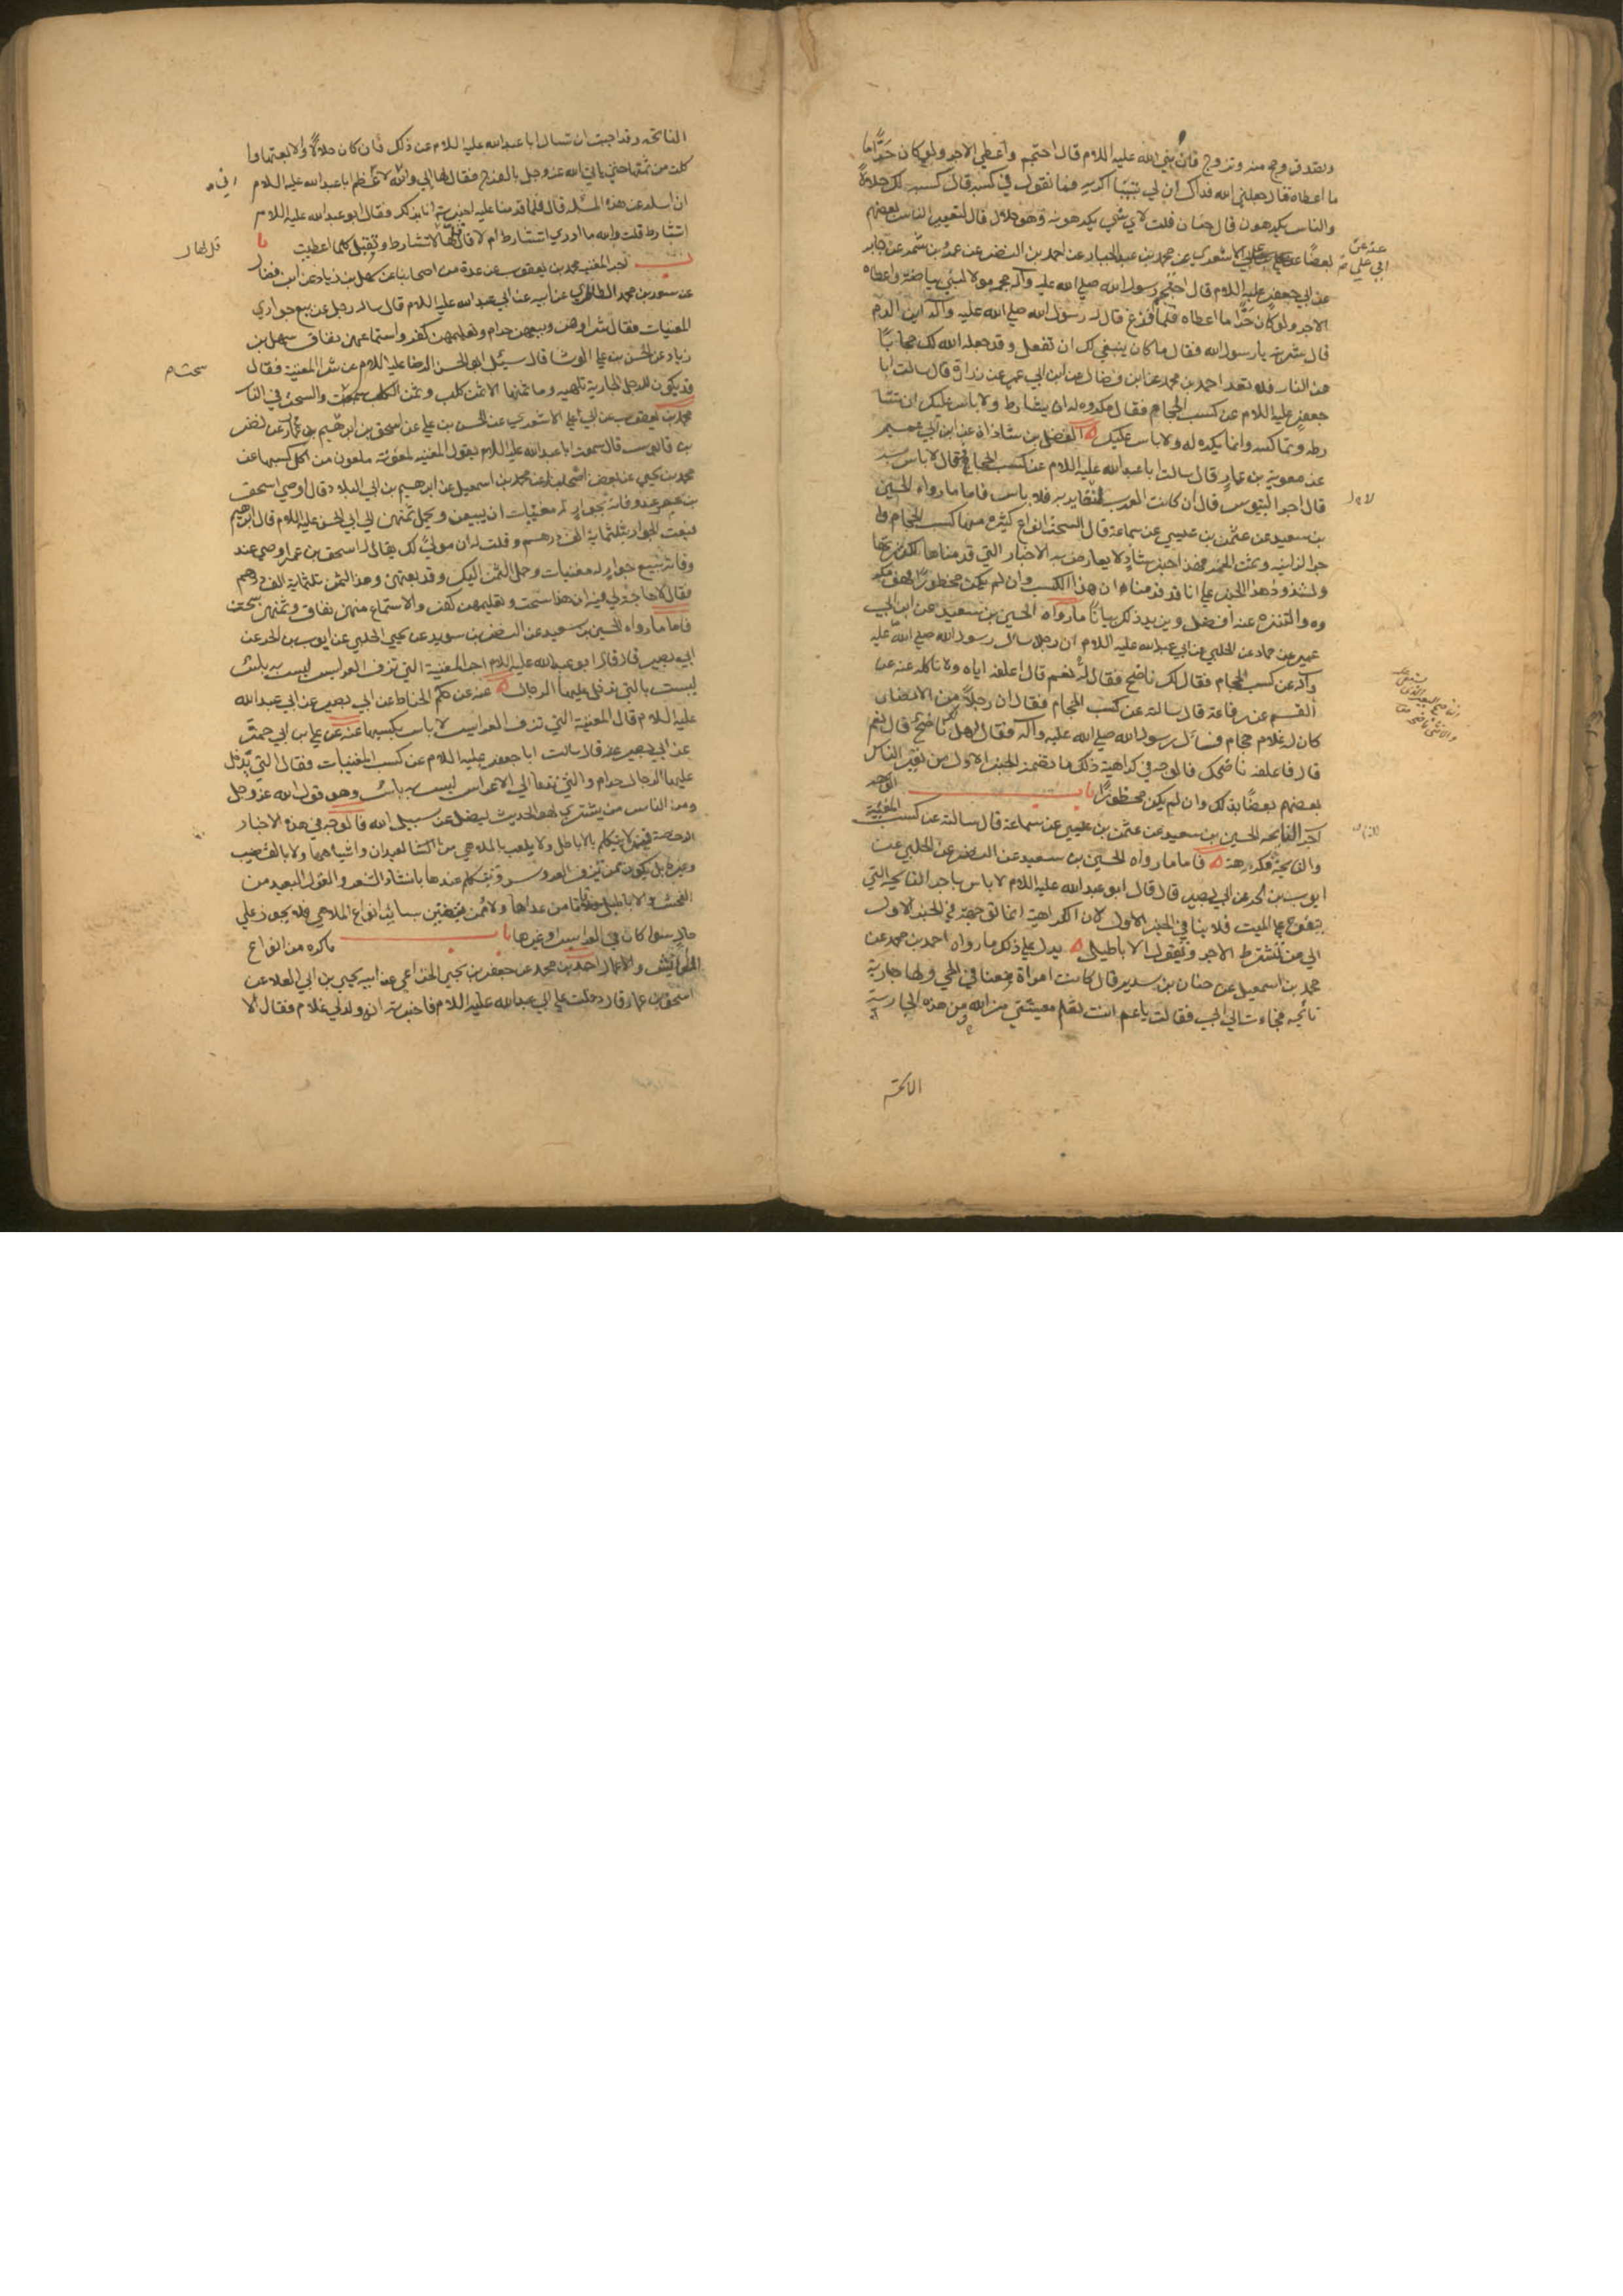 وتصدق وحج منه وتزوج فان نبي الله عليه السلام قال احتجم واعطى الاجر ولو كان حراما ما
ما اعطاه قال جعلني الله فداك ان لي تيسا اكريه فما تقول في كسبه قال كل كسبه لك حلال
والناس يكرهونه قال حنان قلت لاي شي يكرهونه وهو حلال قال لتعيير الناس بعضهم
بعضا الاشعري عن محمد بن عبد الجبار عن احمد بن النضر عن عمرو بن شمر عن جابر
عنه عن
ابي علي
عن ابي جعفر عليه السلام قال احتجم رسول الله صلى الله عليه وآله حجمه مولا لبني بياضة واعطاه
الاجر ولو كان حراما ما اعطاه فلما فرغ قال له رسول الله صلى الله عليه وآله اين الدم
قال شربته يا رسول الله فقال ما كان ينبغي لك ان تفعل وقد جعله الله لك حجابا
من النار فلا تعد احمد بن محمد عن ابن فضال عن ابن ابي عمير عن زرارة قال سالت ابا
جعفر عليه السلام عن كسب الحجام فقال مكروه له ان يشارط ولا باس عليك ان تشا
رطه وتماكسه وانما يكره له ولا باس عليك الفضل بن شاذان عن ابن ابي عمير
عن معوية بن عمار قال سالت ابا عبد الله عليه السلام عن كسب الحجام فقال لا باس به
قال اجر التيوس قال ان كانت العرب لتعاير به فلا باس فاما ما رواه الحسين
بن سعيد عن عثمن بن عيسى عن سماعة قال السحت انواع كثيرة منها كسب الحجام و
اجر الزانية وثمن الخمر فهذا الخبر شاذ لا يعارض به الاخبار التي قدمناها لكثرتها
ولشذوذ هذا الخبر على انا قد قدمنا ان هذا الكسب وان لم يكن محظورا فهو مكر
وه والتنزه عنه افضل ويزيد ذلك بيانا ما رواه الحسين بن سعيد عن ابن ابي
عمير عن حماد عن الحلبي عن ابي عبد الله عليه السلام ان رجلا سال رسول الله صلى الله عليه
وآله عن كسب الحجام فقال لك ناضح فقال له نعم قال اعلفه اياه ولا تاكله عنه عن
القسم عن رفاعة قال سالته عن كسب الحجام فقال ان رجلا من الانصار
كان له غلام حجام فسال رسول الله صلى الله عليه وآله فقال هل لك ناضح قال نعم
قال فاعلفه ناضحك فالوجه في كراهية ذلك ما تضمنه الخبر الاول من تعيير الناس
بعضهم بعضا بذلك وان لم يكن محظورا باب
اجر النائحة الحسين بن سعيد عن عثمن بن عيسى عن سماعة قال سالته عن كسب المغنية
والنائحة فكرهه فاما ما رواه الحسين بن سعيد عن النضر عن الحلبي عن
ايوب بن الحر عن ابي بصير قال قال ابو عبد الله عليه السلام لا باس باجر النائحة التي
تنوح على الميت فلا ينافي الخبر الاول لان الكراهية انما توجهت في الخبر الاول
الى من تشترط الاجر وتقول الاباطيل يدل على ذلك ما رواه احمد بن محمد عن
محمد بن اسمعيل عن حنان بن سدير قال كانت امراة معنا في الحي ولها جارية
نائحة فجاءت الى ابي فقالت يا عم انت تعلم معيشتي من الله ومن هذه الجارية
النائحة وقد احببت ان تسال ابا عبد الله عليه السلام عن ذلك فان كان حلالا والا بعتها وا
كلت من ثمنها حتى ياتي الله عز وجل بالفرج فقال لها ابي والله اني لاعظم ابا عبد الله عليه السلام
ان اسله عن هذه المسئلة قال فلما قدمنا عليه اخبرته انا بذلك فقال ابو عبد الله عليه السلام
اتشارط قلت والله ما ادري اتشارط ام لا قال قل لها لا تشارط وتقبل كلما اعطيت
قل لها
باب اجر المغنية محمد بن يعقوب عن عدة من اصحابنا عن سهل بن زياد عن ابن فضال
عن سعيد بن محمد الطاهري عن ابيه عن ابي عبد الله عليه السلام قال ساله رجل عن بيع جواري
المغنيات فقال شراوهن وبيعهن حرام وتعليمهن كفر واستماعهن نفاق سهل بن
زياد عن الحسن بن علي الوشا قال سئل ابو الحسن الرضا عليه السلام عن شرا المغنية فقال
قد يكون للرجل الجارية تلهيه وما ثمنها الا ثمن كلب وثمن الكلب سحت والسحت في النار
محمد بن يعقوب عن ابي علي الاشعري عن الحسن بن علي عن اسحق بن ابرهيم عن نضر
بن قابوس قال سمعت ابا عبد الله عليه السلام يقول المغنية ملعونة ملعون من اكل كسبها عن
محمد بن يحيى عن بعض اصحابنا عن محمد بن اسمعيل عن ابرهيم بن ابي البلاد قال اوصى اسحق
بن عمر عند وفاته بجوار له مغنيات ان يبعن ويحمل ثمنهن الى ابي الحسن عليه السلام قال ابرهيم
فبعت الجواري بثلثماية الف درهم وقلت له ان مولى لك يقال له اسحق بن عمر اوصى عند
وفاته ببيع جوار له مغنيات وحمل الثمن اليك وقد بعتهن وهذا الثمن ثلثماية الف درهم
فقال لا حاجة لي فيه ان هذا سحت وتعليمهن كفر والاستماع منهن نفاق وثمنهن سحت
فاما ما رواه الحسين بن سعيد عن النضر بن سويد عن يحيى الحلبي عن ايوب بن الحر عن
ابي بصير قال قال ابو عبد الله عليه السلام اجر المغنية التي تزف العرايس ليس به باس
ليست بالتي تدخل عليها الرجال عنه عن حكم الخناط عن ابي بصير عن ابي عبد الله
عليه السلام قال المغنية التي تزف العرايس لا باس بكسبها عنه عن علي بن ابي حمزة
عن ابي بصير قال سالت ابا جعفر عليه السلام عن كسب المغنيات فقال التي يدخل
عليها الرجال حرام والتي تدعا الى الاعراس ليس به باس وهو قول الله عز وجل
ومن الناس من يشتري لهو الحديث ليضل عن سبيل الله فالوجه في هذه الاخبار
الرخصة فيمن لا يتكلم بالاباطيل ولا يلعب بالملاهي من العيدان واشباهها ولا بالقضيب
وغيره بل يكون ممن يزف العروس ويتكلم عندها بانشاد الشعر والقول البعيد من
الفحش والاباطيل فاما من عدا هؤلاء ممن يتغنين بساير انواع الملاهي فلا يجوز على
حال سوا كان في العرايس او غيرها باب ما كره من انواع
المعايش والاعمال احمد بن محمد عن جعفر بن يحيى الخزاعي عن ابيه يحيى بن ابي العلا عن
اسحق بن عمار قال دخلت على ابي عبد الله عليه السلام فاخبرته انه ولد لي غلام فقال الا